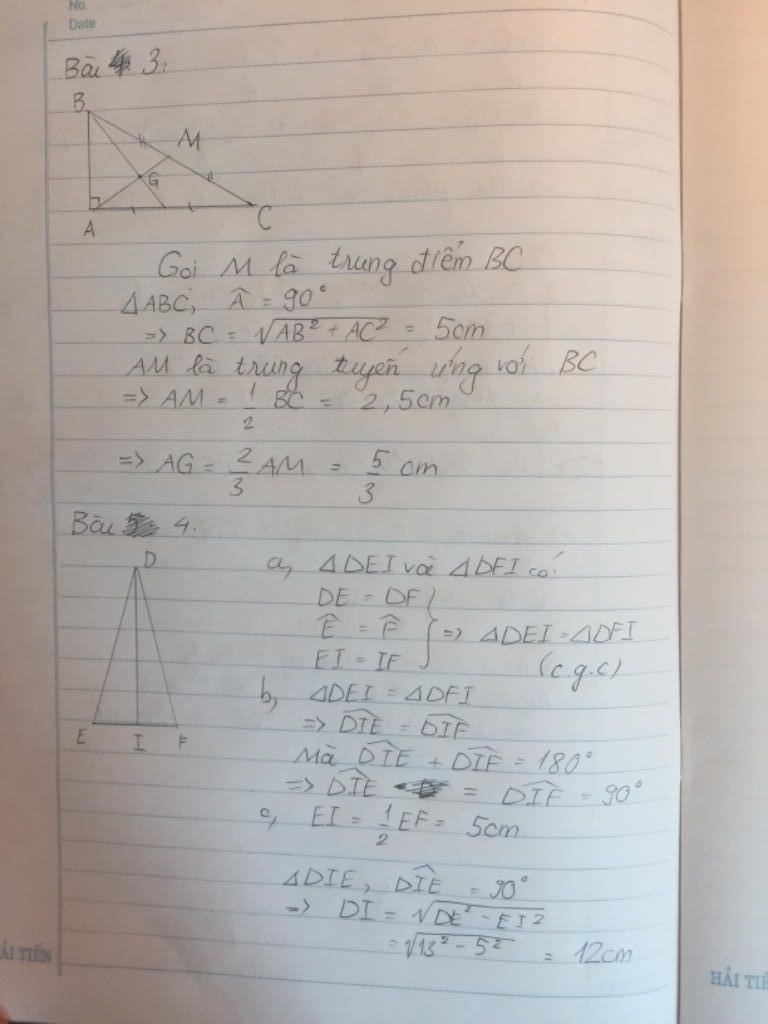 No.
Date
Bài 3:
B
M
G
A
C
Gọi M là trung điểm BC
ΔABC, Â = 90°
=> BC = √(AB² + AC²) = 5cm
AM là trung tuyến ứng với BC
=> AM = 1/2 BC = 2,5cm
=> AG = 2/3 AM = 5/3 cm
Bài 4.
D
E
I
F
a, ΔDEI và ΔDFI có:
DE = DF
Ê = F̂
EI = IF
} => ΔDEI = ΔDFI
(c.g.c)
b, ΔDEI = ΔDFI
=> DIÊ = DIF̂
Mà DIÊ + DIF̂ = 180°
=> DIÊ = DIF̂ = 90°
c, EI = 1/2 EF = 5cm
ΔDIE, DIÊ = 90°
=> DI = √(DE² - EI²)
= √(13² - 5²) = 12cm
ẢI TIẾN
HẢI TIẾ